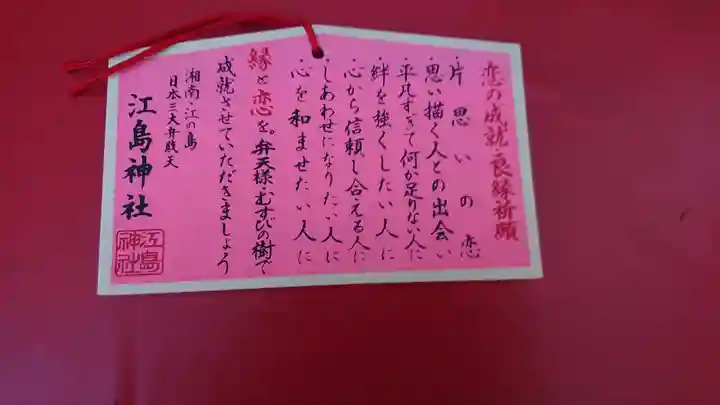 恋の成就・良縁祈願
・片思いの恋
・思い描く人との出会い
・平凡すぎて何か足りない人に
・絆を強くしたい人に
・心から信頼し合える人に
・しあわせになりたい人に
・心を和ませたい人に
縁と恋を。弁天様・むすびの樹で
成就させていただきましょう
湘南・江の島
日本三大弁財天
江島神社
江島
神社